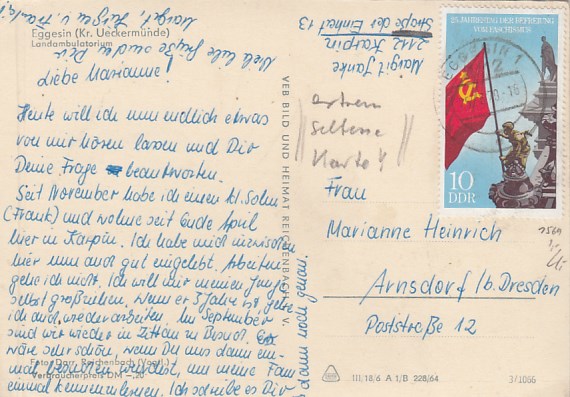 Eggesin (Kr. Ueckermünde)
Landambulatorium
Viele liebe Grüße an Dir
Margit, Jürgen u. Frank
Liebe Marianne!
Heute will ich nun endlich etwas
von mir hören lassen und Dir
Deine Frage beantworten.
Seit November habe ich einen kl. Sohn
(Frank) und wohne seit Ende April
hier in Karpin. Ich habe mich inzwischen
hier nun auch gut eingelebt. Arbeiten
gehe ich nicht. Ich will mir meinen Jungen
selbst großziehen, wenn er 3 Jahre ist gehe
ich auch wieder arbeiten. Im September
sind wir wieder in Zittau zu Besuch. Es
wäre sehr schön, wenn Du uns dann ein-
mal besuchen würdest, um meine Fam
einmal kennenzulernen. Ich schreibe es Dir
dann noch genau.
Foto: Darr, Reichenbach (Vogtl.)
Verbraucherpreis DM –,20
VEB BILD UND HEIMAT REICHENBACH i. V.
Margit Janke
2112 Karpin
Straße der Einheit 13
extrem
seltene
Karte!
25. JAHRESTAG DER BEFREIUNG
VOM FASCHISMUS
EGGESIN 1
10
DDR
Frau
Marianne Heinrich
Arnsdorf /b. Dresden
Poststraße 12
1569
III/18/6 A 1/B 228/64
3/1066